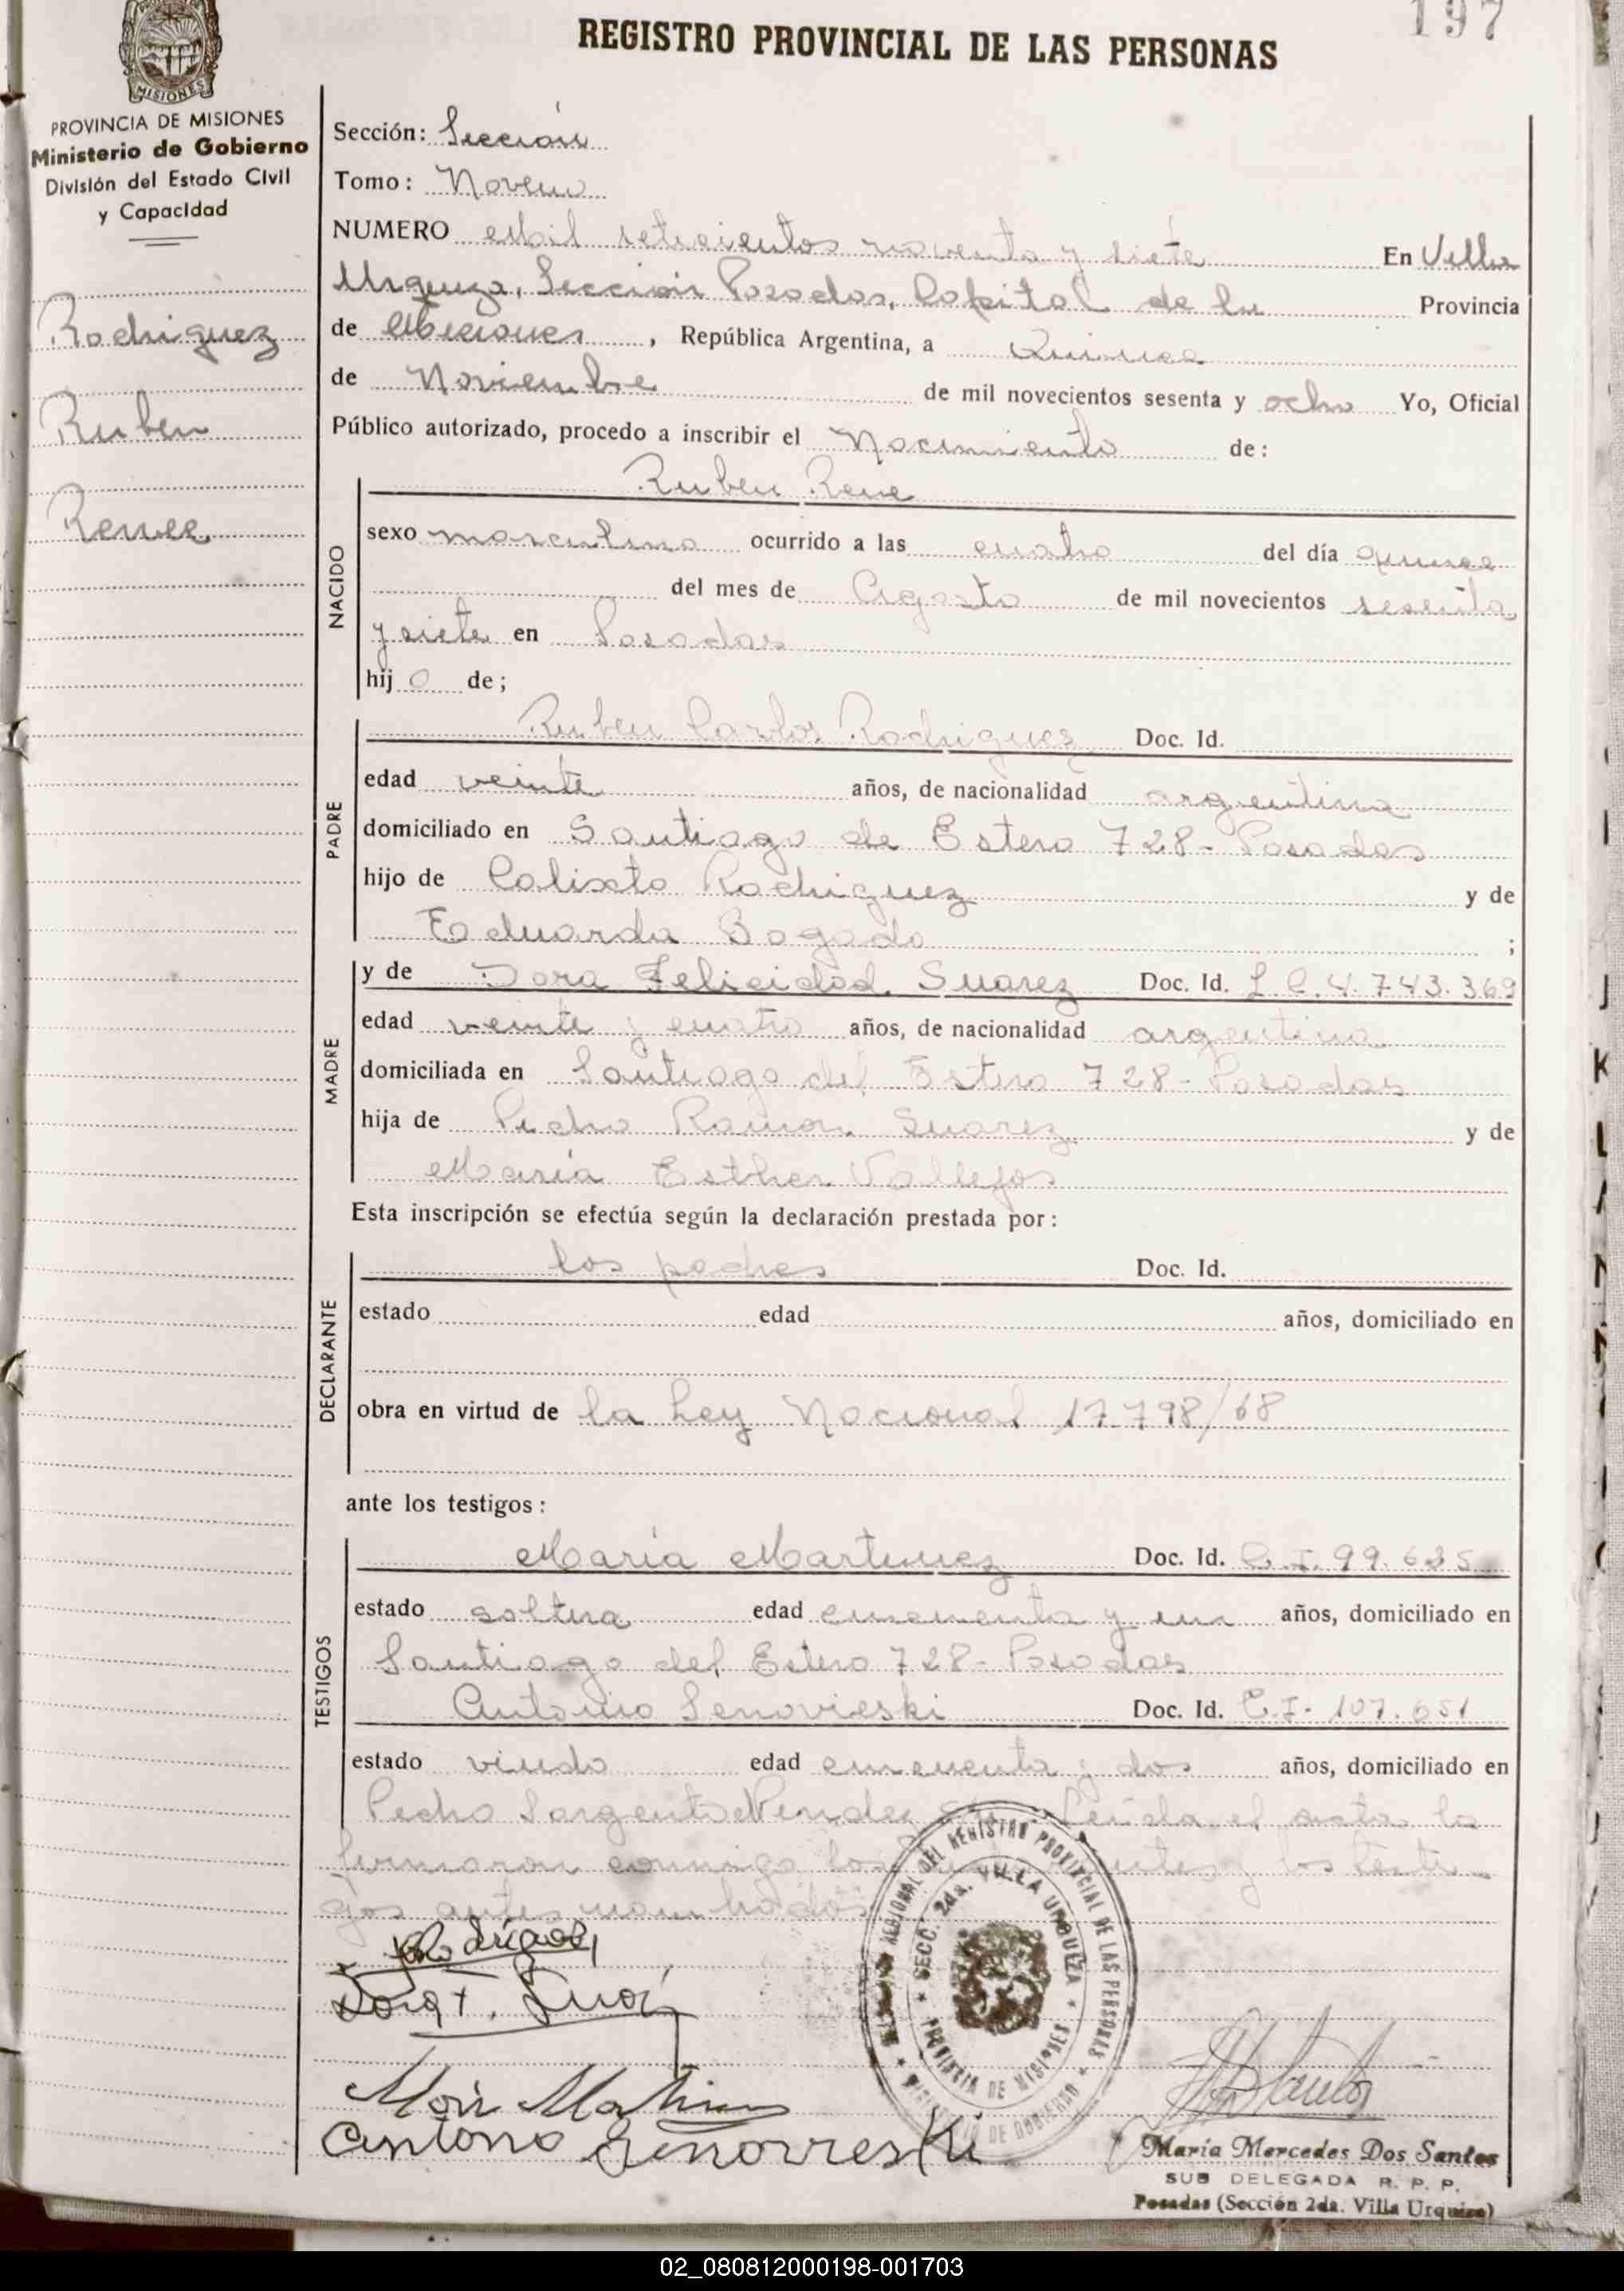 197
REGISTRO PROVINCIAL DE LAS PERSONAS
MISIONES
PROVINCIA DE MISIONES
Ministerio de Gobierno
División del Estado Civil
y Capacidad
Rodriguez
Ruben
Renee
Sección: Sección
Tomo: Noveno
NUMERO Mil setecientos noventa y siete En Villa
Urquiza, Sección Posadas, Capital de la Provincia
de Misiones, República Argentina, a Quince
de Noviembre de mil novecientos sesenta y ocho Yo, Oficial
Público autorizado, procedo a inscribir el Nacimiento de:
NACIDO
Ruben Rene
sexo masculino ocurrido a las cuatro del día quince
del mes de Agosto de mil novecientos sesenta
y siete en Posadas
hijo de;
PADRE
Ruben Carlos Rodriguez Doc. Id.
edad veinte años, de nacionalidad argentina
domiciliado en Santiago de Estero 728 - Posadas
hijo de Calixto Rodriguez y de
Eduarda Bogado ;
MADRE
y de Dora Felicidad Suarez Doc. Id. L.C. 4.743.369
edad veinte y cuatro años, de nacionalidad argentina
domiciliada en Santiago del Estero 728 - Posadas
hija de Pedro Ramon Suarez y de
Maria Esther Vallejos
Esta inscripción se efectúa según la declaración prestada por:
DECLARANTE
los padres Doc. Id.
estado edad años, domiciliado en
obra en virtud de la Ley Nacional 17.798/68
ante los testigos:
TESTIGOS
María Martinez Doc. Id. C.I. 99.635
estado soltera edad cincuenta y un años, domiciliado en
Santiago del Estero 728 - Posadas
Antonio Senovieski Doc. Id. C.I. 107.651
estado viudo edad cincuenta y dos años, domiciliado en
Pedro Sargento Mendez Leida el acta la
firmaron conmigo los y los testi-
gos antes nombrados
Rodriguez
Dora F. Suarez
Antonio
REGIONAL DEL REGISTRO PROVINCIAL DE LAS PERSONAS
SECC. 2da. VILLA URQUIZA
PROVINCIA DE MISIONES
MINISTERIO DE GOBIERNO
María Mercedes Dos Santos
SUB DELEGADA R. P. P.
Posadas (Sección 2da. Villa Urquiza)
02_080812000198-001703